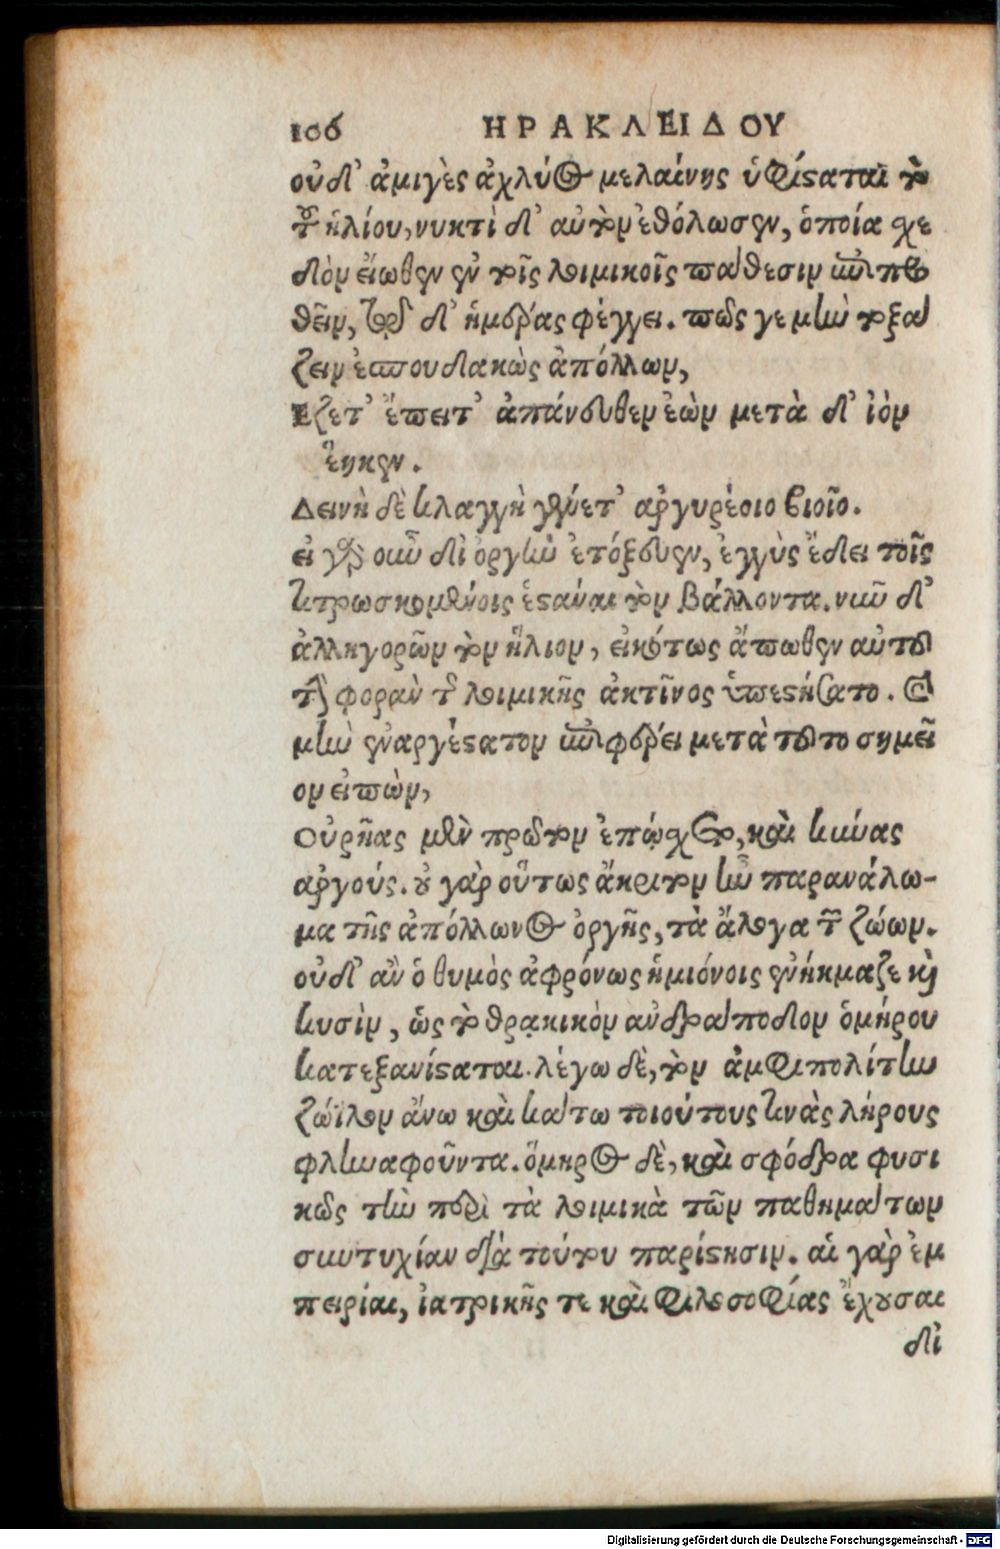 106 ΗΡΑΚΛΕΙΔΟΥ
οὐδ' ἀμιγὲς ἀχλύος μελαίνης ὑφίσαται τὸ
τοῦ ἡλίου, νυκτὶ δ' αὐτὸν ἐθόλωσεν, ὁποία χε
δὸν εἴωθεν ἐν τοῖς λοιμικοῖς πάθεσιν ἐπιπο
θεῖν, τὸ δ' ἡμέρας φέγγει. πῶς γε μὴν τοξά
ζειν ἐσπουδακὼς ἀπόλλων,
Εζετ' ἔπειτ' ἀπάνευθεν ἐὼν μετὰ δ' ἰὸν
ἕηκεν.
Δεινὴ δὲ κλαγγὴ γένετ' ἀργυρέοιο βιοῖο.
εἰ γὰρ οὖν δὶ ὀργὴν ἐτόξευεν, ἐγγὺς ἔδει τοῖς
τιτρωσκομένοις ἑστάναι τὸν βάλλοντα. νῦν δ'
ἀλληγορῶν τὸν ἥλιον, εἰκότως ἄπωθεν αὐτοῦ
τὴν φορὰν τῆς λοιμικῆς ἀκτῖνος ὑπεστήσατο. καὶ
μὴν ἐναργέστατον ἐπιφέρει μετὰ τοῦτο σημεῖ
ον εἰπὼν,
Οὐρῆας μὲν πρῶτον ἐπῴχετο, καὶ κύνας
ἀργούς. οὐ γὰρ οὕτως ἄκριτον ἦν παρανάλω-
μα τῆς ἀπόλλωνος ὀργῆς, τὰ ἄλογα τῶν ζώων.
οὐδ' ἂν ὁ θυμὸς ἀφρόνως ἡμιόνοις ἐνήκμαζε καὶ
κυσὶν, ὡς τὸ θρᾳκικὸν ἀνδράποδον ὁμήρου
κατεξανίσταται. λέγω δὲ, τὸν ἀμφιπολίτην
ζώϊλον ἄνω καὶ κάτω τοιούτους τινὰς λήρους
φληναφοῦντα. ὅμηρος δὲ, καὶ σφόδρα φυσι
κῶς τὴν περὶ τὰ λοιμικὰ τῶν παθημάτων
συντυχίαν διὰ τούτου παρίστησιν. αἱ γὰρ ἐμ
πειρίαι, ἰατρικῆς τε καὶ φιλοσοφίας ἔχουσαι
δὶ
Digitalisierung gefördert durch die Deutsche Forschungsgemeinschaft - DFG